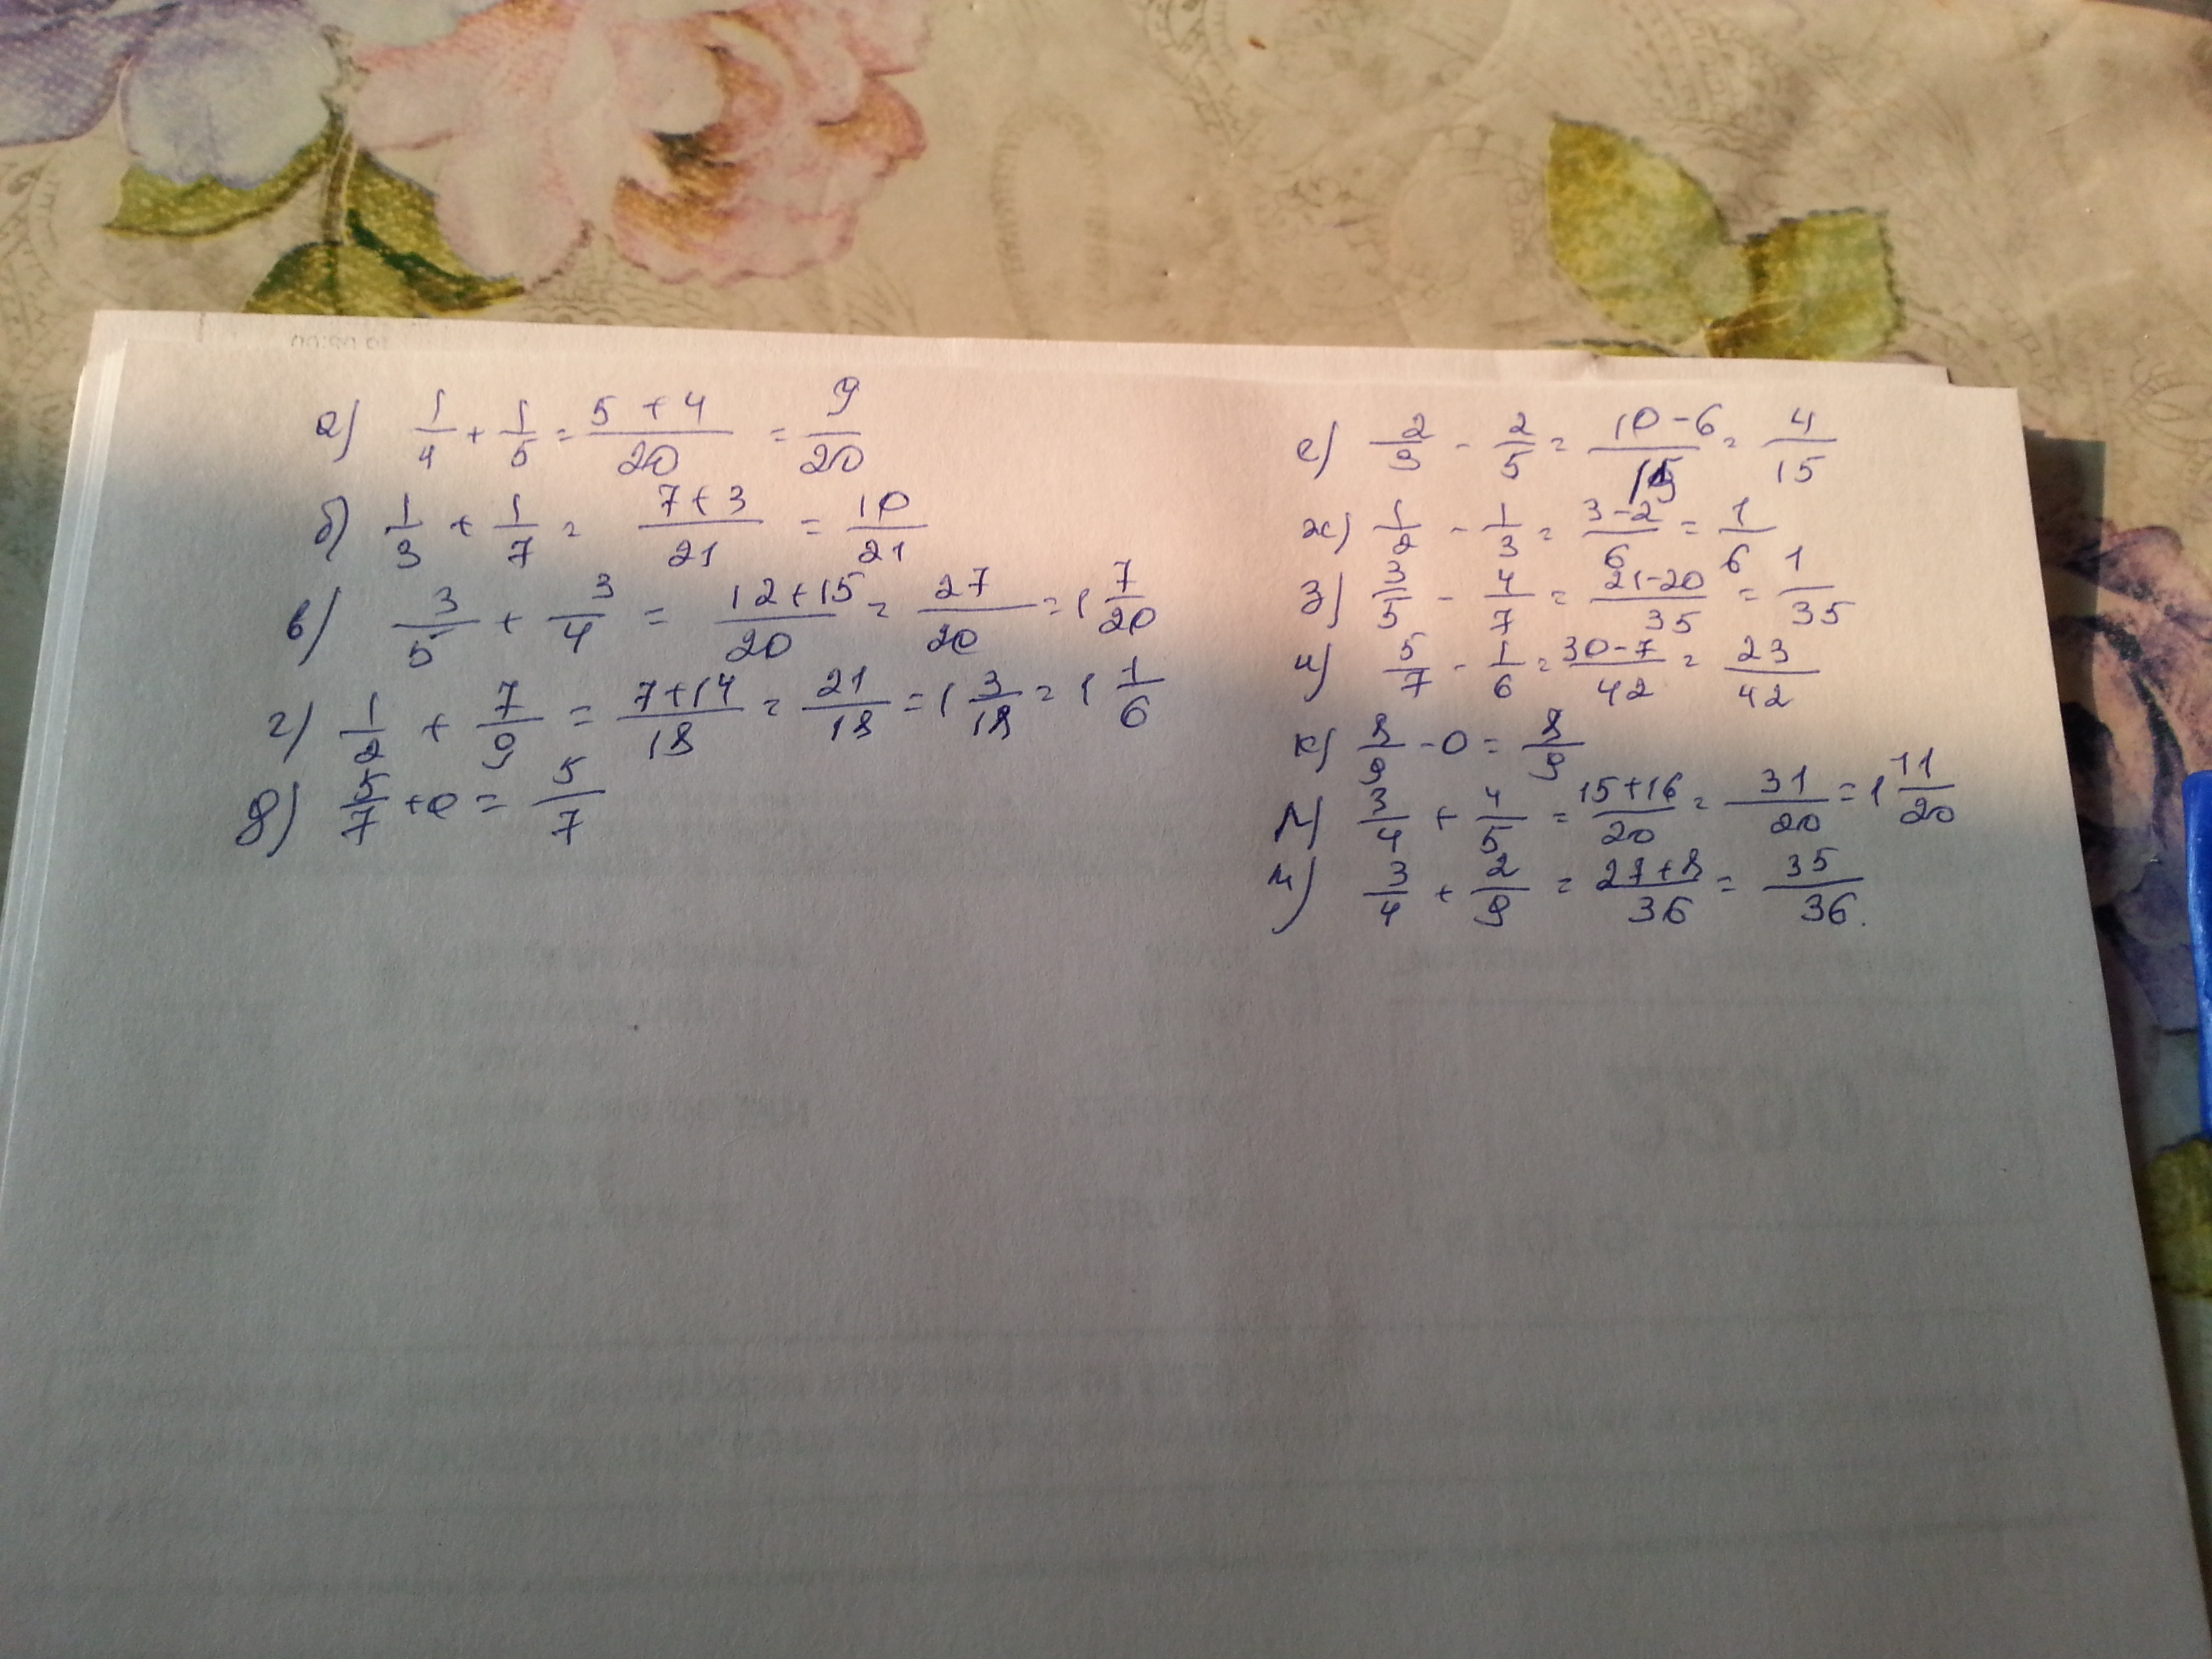 а) 1/4 + 1/5 = (5+4)/20 = 9/20
б) 1/3 + 1/7 = (7+3)/21 = 10/21
в) 3/5 + 3/4 = (12+15)/20 = 27/20 = 1 7/20
г) 1/2 + 7/9 = (7+14)/18 = 21/18 = 1 3/18 = 1 1/6
д) 5/7 + 0 = 5/7
е) 2/3 - 2/5 = (10-6)/15 = 4/15
ж) 1/2 - 1/3 = (3-2)/6 = 1/6
з) 3/5 - 4/7 = (21-20)/35 = 1/35
и) 5/7 - 1/6 = (30-7)/42 = 23/42
к) 8/9 - 0 = 8/9
л) 3/4 + 4/5 = (15+16)/20 = 31/20 = 1 11/20
м) 3/4 + 2/9 = (27+8)/36 = 35/36.